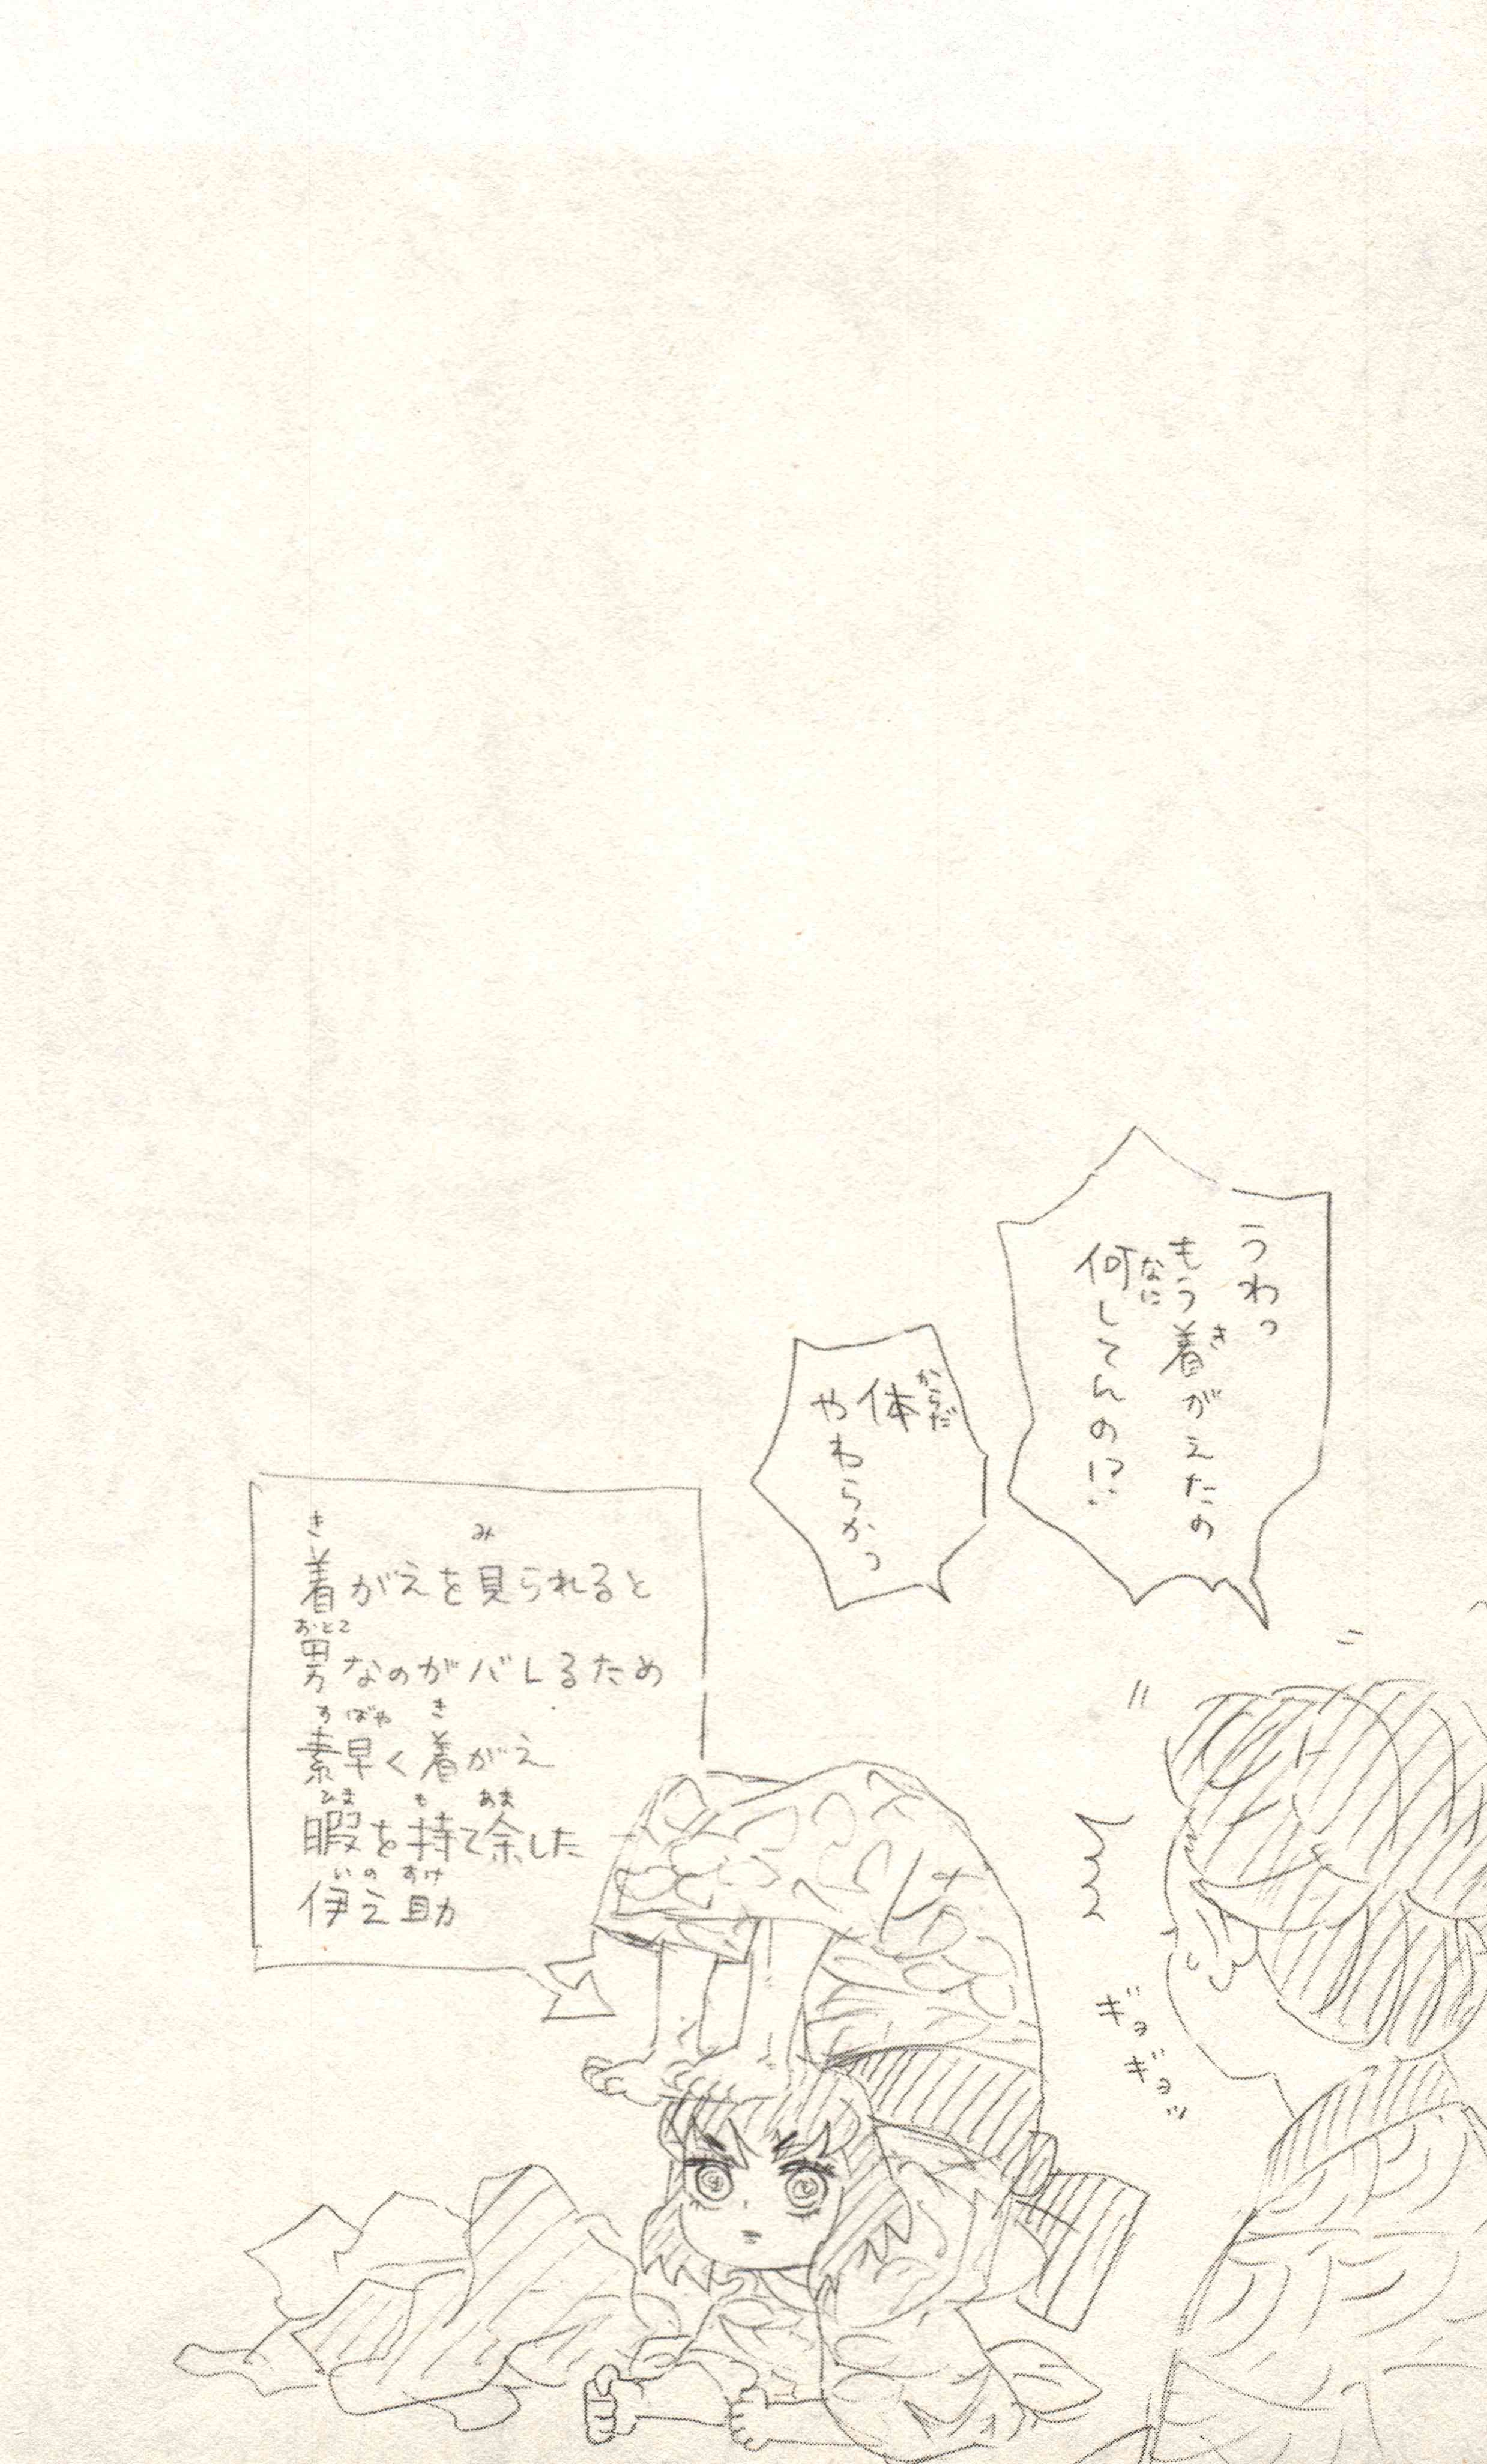 うわっ
もう着がえたの
何してんの!?
体
やわらかっ
着がえを見られると
男なのがバレるため
素早く着がえ
暇を持て余した
伊之助
ギョギョッ